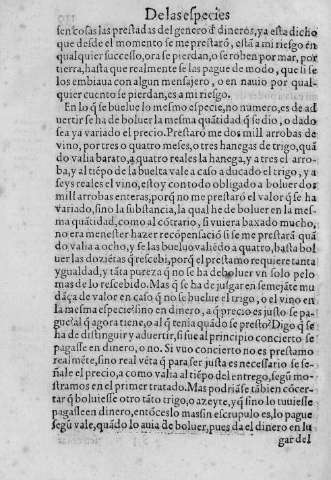 De las especies
sen cosas las prestadas del genero d̃ dineros, ya esta dicho
que desde el momento se me prestarõ, està a mi riesgo en
qualquier successo, ora se pierdan, o se roben por mar, por
tierra, hasta que realmente se las pague de modo, que si se
los embiaua con algun mensajero, o en nauio por qual-
quier cuento se pierdan, es a mi riesgo.
En lo q̃ se buelue lo mesmo especie, no numero, es de ad
uertir se ha de boluer la mesma quãtidad q̃ se dio, o dado
sea ya variado el precio. Prestarõ me dos mill arrobas de
vino, por tres o quatro meses, o tres hanegas de trigo, quã
do valia barato, a quatro reales la hanega, y a tres el arro-
ba, y al tiẽpo de la buelta vale a caso a ducado el trigo, y a
seys reales el vino, estoy con todo obligado a boluer dos
mill arrobas enteras, porq̃ no me prestarõ el valor q̃ se ha
variado, sino la substancia, la qual he de boluer en la mes-
ma quãtidad, como al cõtrario, si vuiera baxado mucho,
no era menester hazer recõpensaciõ si se me prestarã quã
do valia a ocho, y se las bueluo valiẽdo a quatro, basta bol
uer las doziẽtas q̃ rescebi, porq̃ el prestamo requiere tanta
ygualdad, y tãta pureza q̃ no se ha de boluer vn solo pelo
mas de lo rescebido. Mas q̃ se ha de jusgar en semejãte mu
dãça de valor en caso q̃ no se buelue el trigo, o el vino en
la mesma especie? sino en dinero, a q̃ precio es justo se pa-
gue? al q̃ agora tiene, o al q̃ tenia quãdo se presto? Digo q̃ se
ha de distinguir y aduertir, si fue al principio concierto se
pagasse en dinero, o no. Si vuo concierto no es prestamo
realmẽte, sino real vẽta q̃ para ser justa es necessario se se-
ñale el precio, a como valia al tiẽpo del entrego, segũ mo-
stramos en el primer tratado. Mas podriãse tãbien cõcer-
tar q̃ boluiesse otro tãto trigo, o azeyte, y q̃ sino lo tuuiesse
pagasse en dinero, entõces lo mas sin escrupulo es, lo pague
segũ vale, quãdo lo auia de boluer, pues da el dinero en lu
gar del